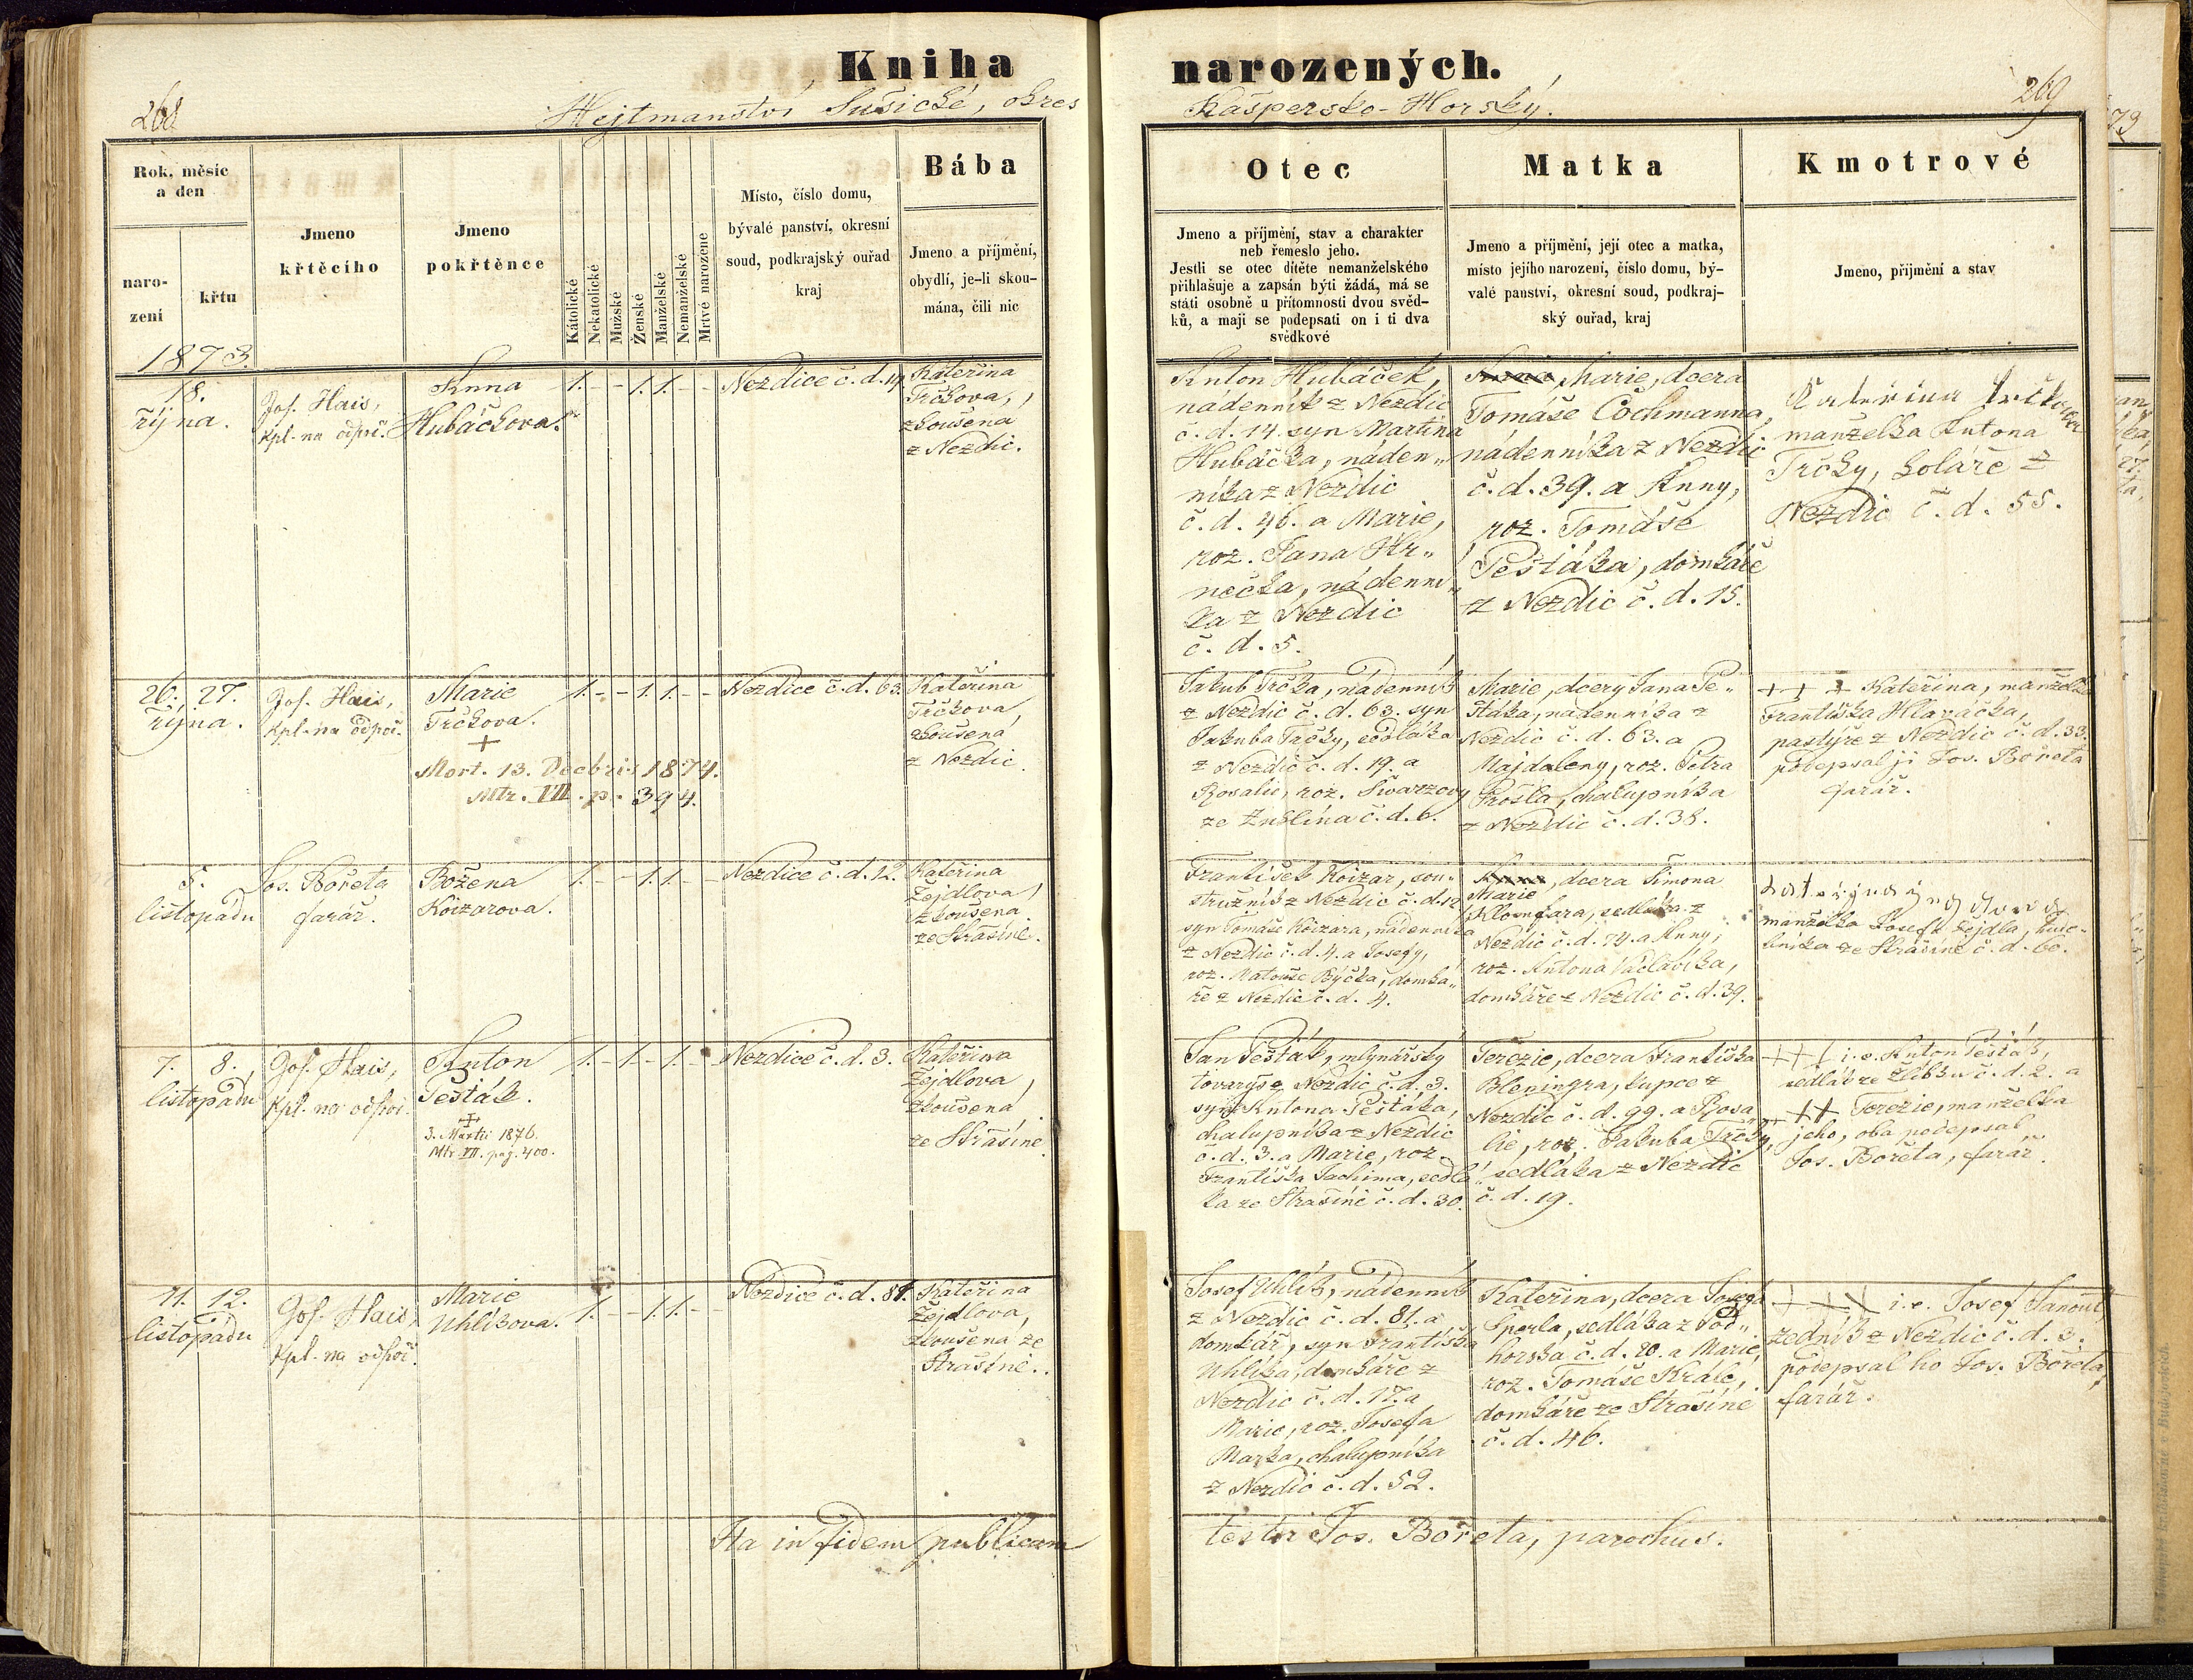 Kniha narozených.
268
Hejtmanství Sušické, okres Kašpersko-Horský.
269
Rok, měsíc
a den
naro-
zení
křtu
Jmeno
křtěcího
Jmeno
pokřtěnce
Kátolické
Nekatolické
Mužské
Ženské
Manželské
Nemanželské
Mrtvé narozene
Místo, číslo domu,
bývalé panství, okresní
soud, podkrajský ouřad
kraj
Bába
Jmeno a příjmění,
obydlí, je-li skou-
mána, čili nic
Otec
Jmeno a příjmění, stav a charakter
neb řemeslo jeho.
Jestli se otec dítěte nemanželského
přihlašuje a zapsán býti žádá, má se
státi osobně u přítomnosti dvou svěd-
ků, a mají se podepsati on i ti dva
svědkové
Matka
Jmeno a příjmění, její otec a matka,
místo jejího narození, číslo domu, bý-
valé panství, okresní soud, podkraj-
ský ouřad, kraj
Kmotrové
Jmeno, přijmění a stav
1873.
18.
října.
Jos. Hais,
kpl. na odpoč.
Anna
Hubáčkova.
1. - - 1. 1. - -
Nezdice č. d. 14.
Kateřina
Trčkova,
zkoušena
z Nezdic.
Anton Hubáček,
nádenník z Nezdic
č. d. 14. syn Martina
Hubáčka, náden„
níka z Nezdic
č. d. 46. a Marie,
roz. Jana Hr„
nečka, nádenní„
ka z Nezdic
č. d. 5.
Anna, Marie, dcera
Tomáše Cochmanna,
nádenníka z Nezdic
č. d. 39. a Anny,
roz. Tomáše
Pešťáka, domkáře
z Nezdic č. d. 15.
Kateřina Trčkova
manželka Antona
Trčky, koláře z
Nezdic č. d. 55.
26. 27.
října.
Jos. Hais,
kpl. na odpoč.
Marie
Trčkova.
+
Mort. 13. Decbris 1874.
Mtr. VII. p. 394.
1. - - 1. 1. - -
Nezdice č. d. 63.
Kateřina
Trčkova,
zkoušena
z Nezdic.
Jakub Trčka, nádenník
z Nezdic č. d. 63. syn
Jakuba Trčky, sedláka
z Nezdic č. d. 19. a
Rosalie, roz. Švarzovy
ze Žublína č. d. 6.
Marie, dcery Jana Pe„
šťáka, nádenníka z
Nezdic č. d. 63. a
Majdaleny, roz. Petra
Prošla, chalupníka
z Nezdic č. d. 38.
+ + + Kateřina, manželka
Františka Hlaváčka,
pastýře z Nezdic č. d. 33.
podepsal ji Jos. Bořeta
farář.
5.
listopadu
Jos. Bořeta
farář.
Božena
Koizarova.
1. - - 1. 1. - -
Nezdice č. d. 12.
Kateřina
Žejdlova,
zkoušena
ze Strašíně.
František Koizar, sou„
stružník z Nezdic č. d. 12.
syn Tomáše Koizara, nádenníka
z Nezdic č. d. 4. a Josefy,
roz. Matouše Býčka, domká„
ře z Nezdic č. d. 4.
Anna, dcera Šimona
Marie
Klosnfara, sedláka z
Nezdic č. d. 74. a Anny,
roz. Antona Václavíka,
domkáře z Nezdic č. d. 39.
manželka Josefa Žejdla,
ze Strašíně č. d. 60.
7. 8.
listopadu
Jos. Hais,
kpl. na odpoč.
Anton
Pešťák.
+
3. Martii 1876.
Mtr. VII. pag. 400.
1. - 1. - 1. - -
Nezdice č. d. 3.
Kateřina
Žejdlova,
zkoušená
ze Strašíně.
Jan Pešťák, mlynářský
tovaryš z Nezdic č. d. 3.
syn Antona Pešťáka,
chalupníka z Nezdic
č. d. 3. a Marie, roz.
Františka Jachima, sedlá„
ka ze Strašíně č. d. 30.
Terezie, dcera Františka
Bleningra, kupce z
Nezdic č. d. 99. a Rosa„
lie, roz. Jakuba Trčky,
sedláka z Nezdic
č. d. 19.
+ + + i. e. Anton Pešťák,
sedlák ze Žlíbku č. d. 2. a
+ + + Terezie, manželka
jeho, oba podepsal
Jos. Bořeta, farář.
11. 12.
listopadu
Jos. Hais,
kpl. na odpoč.
Marie
Uhlíkova.
1. - - 1. 1. - -
Nezdice č. d. 81.
Kateřina
Žejdlova,
zkoušena ze
Strašíně.
Josef Uhlík, nádenník
z Nezdic č. d. 81. a
domkář, syn Františka
Uhlíka, domkáře z
Nezdic č. d. 17. a
Marie, roz. Josefa
Marka, chalupníka
z Nezdic č. d. 52.
Kateřina, dcera Josefa
Šperla, sedláka z Pod„
horska č. d. 20. a Marie,
roz. Tomáše Krále,
domkáře ze Strašíně
č. d. 46.
+ + + i. e. Josef Janout,
zedník z Nezdic č. d. 3.
podepsal ho Jos. Bořeta,
farář.
Ita in fidem publicam
testor Jos. Bořeta, parochus.